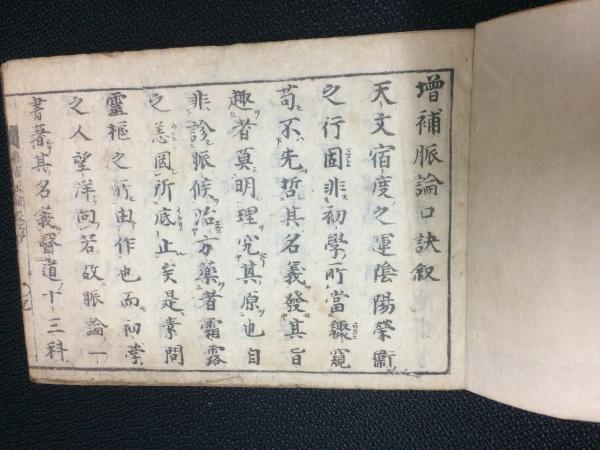 增補脈論口訣叙
天文宿度之運陰陽榮衞
之行固非初學所當驟窺
苟不先哲其名義發其旨
趣者莫明理究其原也自
非診脈候治方藥者霜露
之恙固所底止矣是素問
靈樞之所由作也而初學
之人望洋向若故脈論一
書著其名義醫道十三科